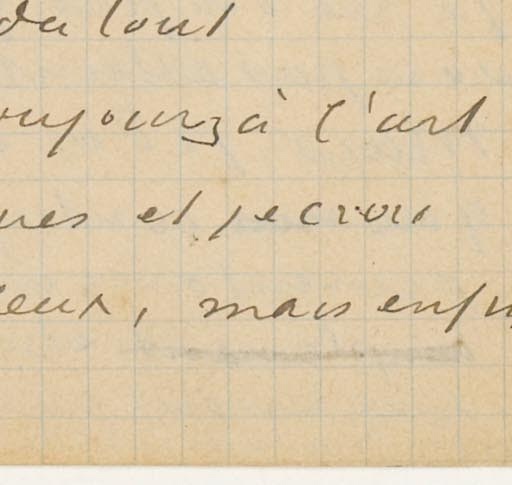 du tout
oujours à l'art
ues et je crois
eux, mais enfin